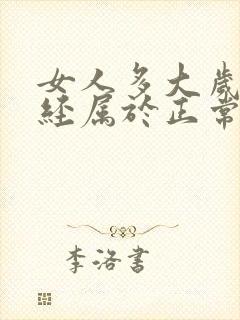 女人多大歲
經属於正常
李洛書